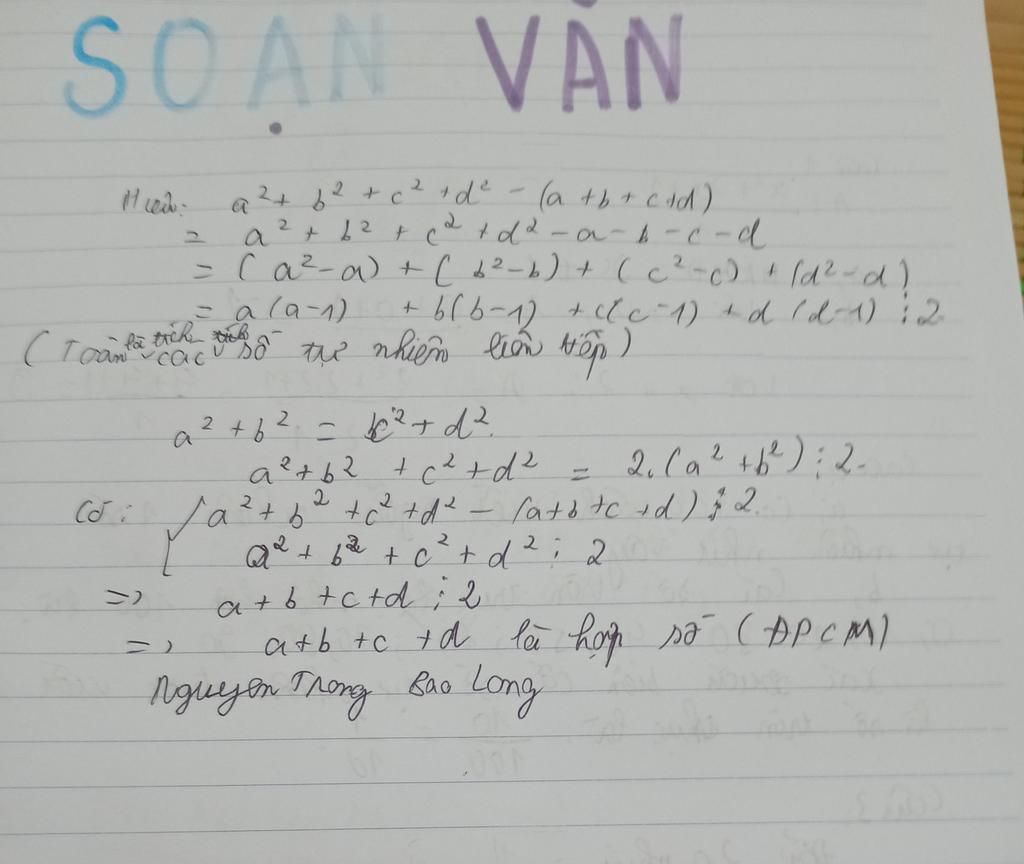 SOẠN VĂN
Hiệu: a² + b² + c² + d² - (a + b + c + d)
= a² + b² + c² + d² - a - b - c - d
= (a² - a) + (b² - b) + (c² - c) + (d² - d)
= a(a-1) + b(b-1) + c(c-1) + d(d-1) ⋮ 2
(Toàn là tích các số tự nhiên liên tiếp)
a² + b² = c² + d².
a² + b² + c² + d² = 2.(a² + b²) ⋮ 2.
Có: a² + b² + c² + d² - (a + b + c + d) ⋮ 2.
a² + b² + c² + d² ⋮ 2
=> a + b + c + d ⋮ 2
=> a + b + c + d là hợp số (ĐPCM)
Nguyen Trong Bao Long